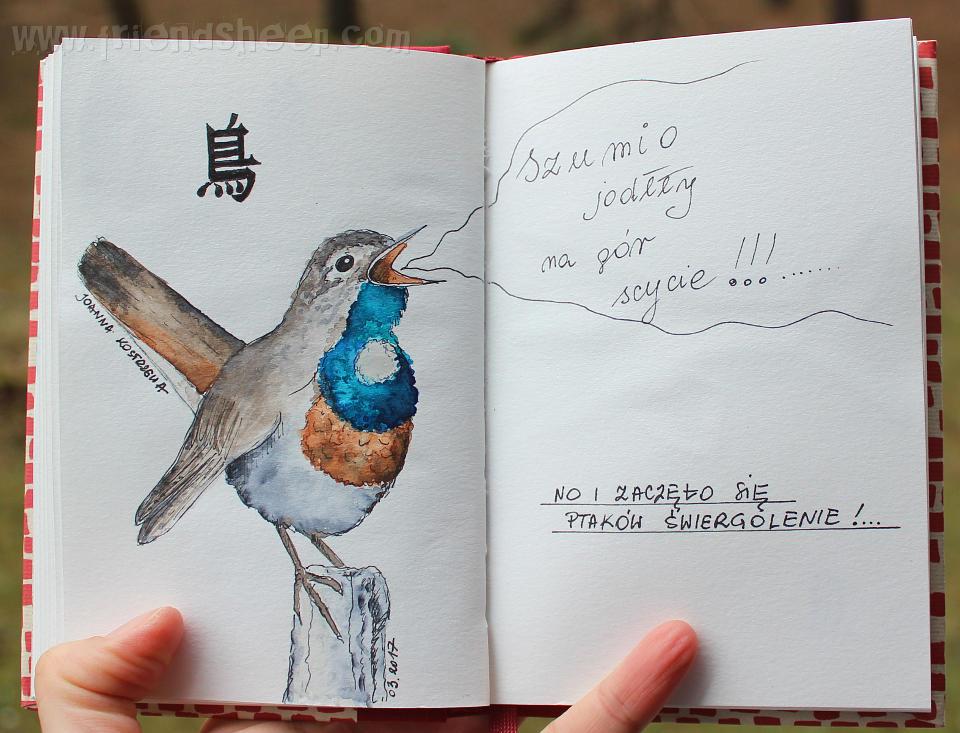 www.friendsheep.com
鳥
JOANNA KOSTRZEWA
Szumio
jodłły
na gór
scycie !!!.......
NO I ZACZĘŁO SIĘ
PTAKÓW ŚWIERGÓLENIE !...
03.2017